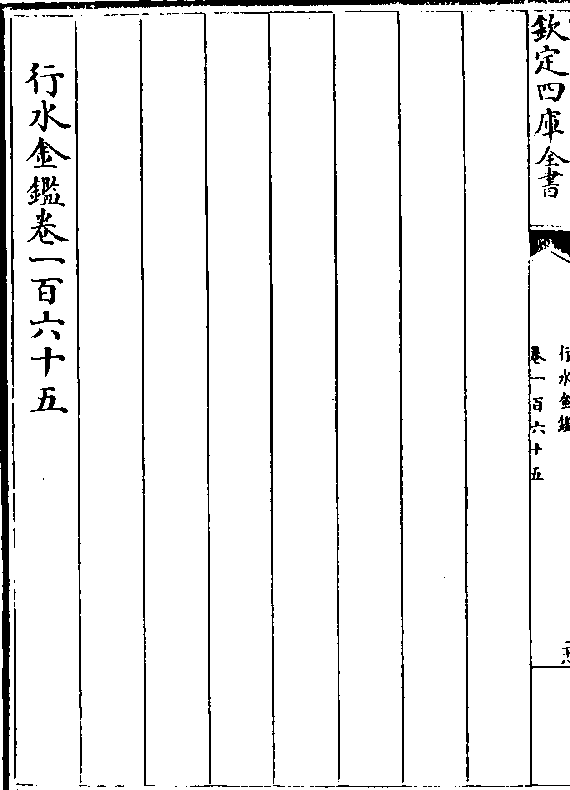 欽定四庫全書
行水金鑑
卷一百六十五
行水金鑑卷一百六十五